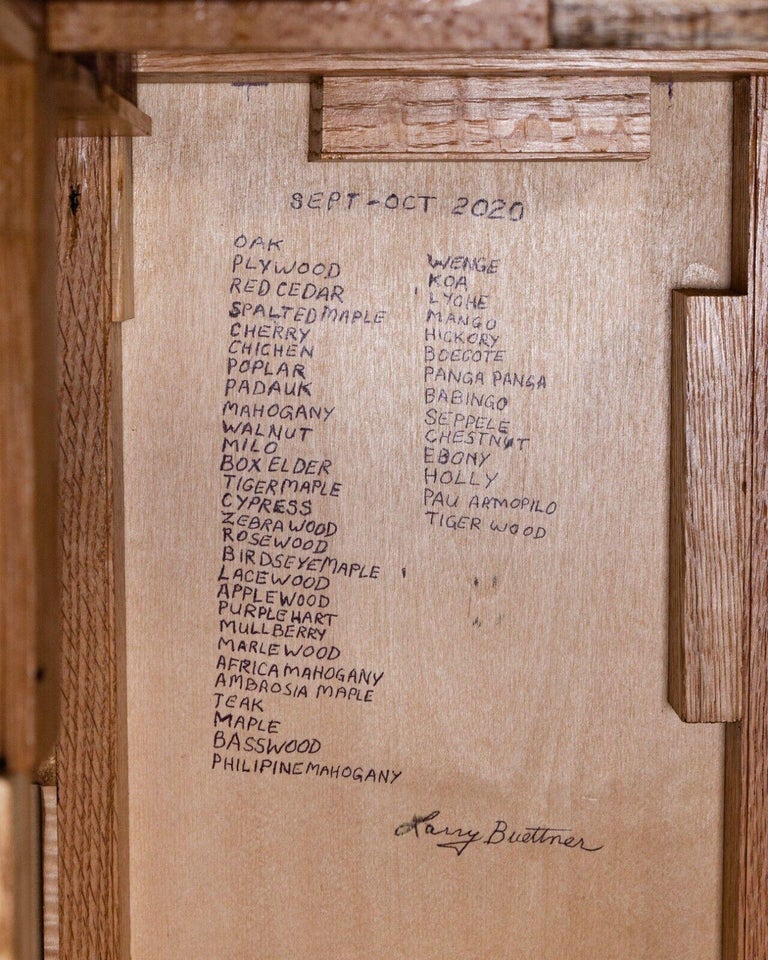 SEPT-OCT 2020
OAK
PLYWOOD
RED CEDAR
SPALTED MAPLE
CHERRY
CHICHEN
POPLAR
PADAUK
MAHOGANY
WALNUT
MILO
BOX ELDER
TIGER MAPLE
CYPRESS
ZEBRA WOOD
ROSEWOOD
BIRDSEYE MAPLE
LACEWOOD
APPLEWOOD
PURPLE HART
MULLBERRY
MARLEWOOD
AFRICA MAHOGANY
AMBROSIA MAPLE
TEAK
MAPLE
BASSWOOD
PHILIPINE MAHOGANY
WENGE
KOA
LYCHE
MANGO
HICKORY
BOECOTE
PANGA PANGA
BABINGO
SEPPELE
CHESTNUT
EBONY
HOLLY
PAU ARMOPILO
TIGER WOOD
Larry Buettner